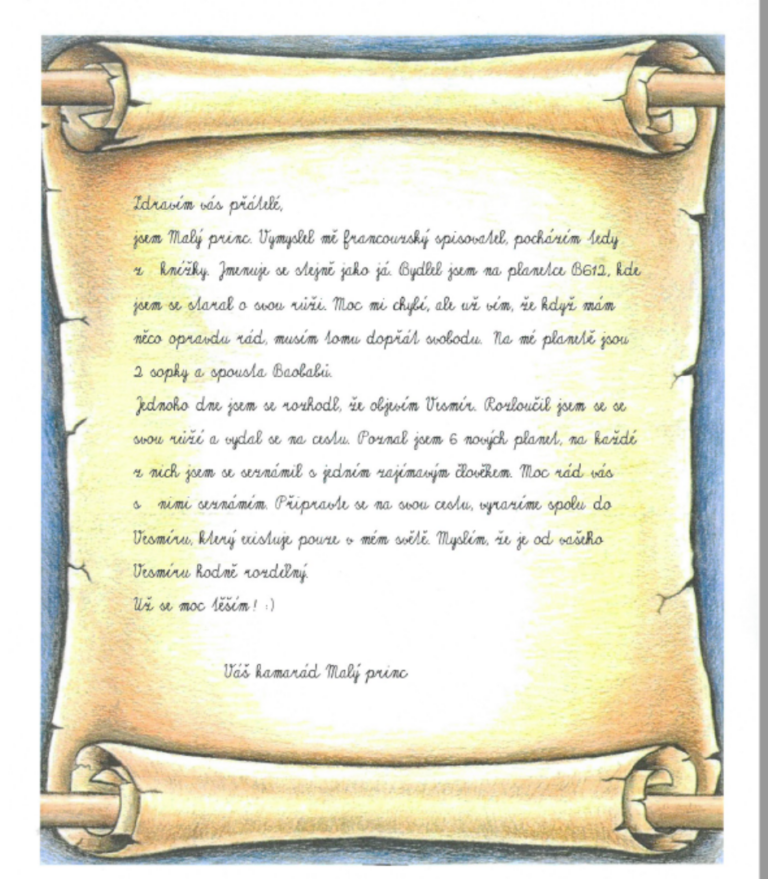 Zdravím vás přátelé,
jsem Malý princ. Vymyslel mě francouzský spisovatel, pocházím tedy
z knížky. Jmenuje se stejně jako já. Bydlel jsem na planetce B612, kde
jsem se staral o svou růži. Moc mi chybí, ale už vím, že když mám
něco opravdu rád, musím tomu dopřát svobodu. Na mé planetě jsou
2 sopky a spousta Baobabů.
Jednoho dne jsem se rozhodl, že objevím Vesmír. Rozloučil jsem se se
svou růží a vydal se na cestu. Poznal jsem 6 nových planet, na každé
z nich jsem se seznámil s jedním zajímavým člověkem. Moc rád vás
s nimi seznámím. Připravte se na svou cestu, vyrazíme spolu do
Vesmíru, který existuje pouze v mém světě. Myslím, že je od vašeho
Vesmíru hodně rozdělný.
Už se moc těším! :)
Váš kamarád Malý princ